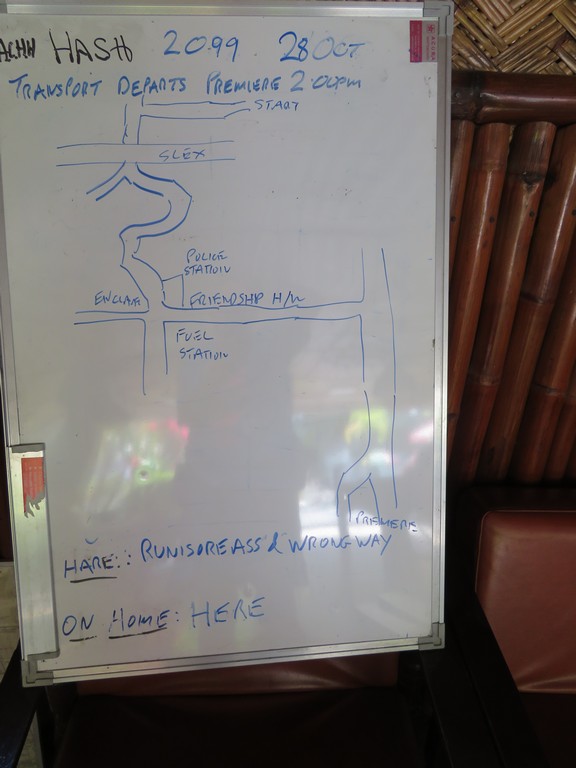 ACHH HASH 2099 28 OCT
TRANSPORT DEPARTS PREMIERE 2:00PM
START
SLEX
POLICE
STATION
ENCLAVE FRIENDSHIP H/W
FUEL
STATION
PREMIERE
HARE: RUNISOREASS & WRONG WAY
ON HOME: HERE